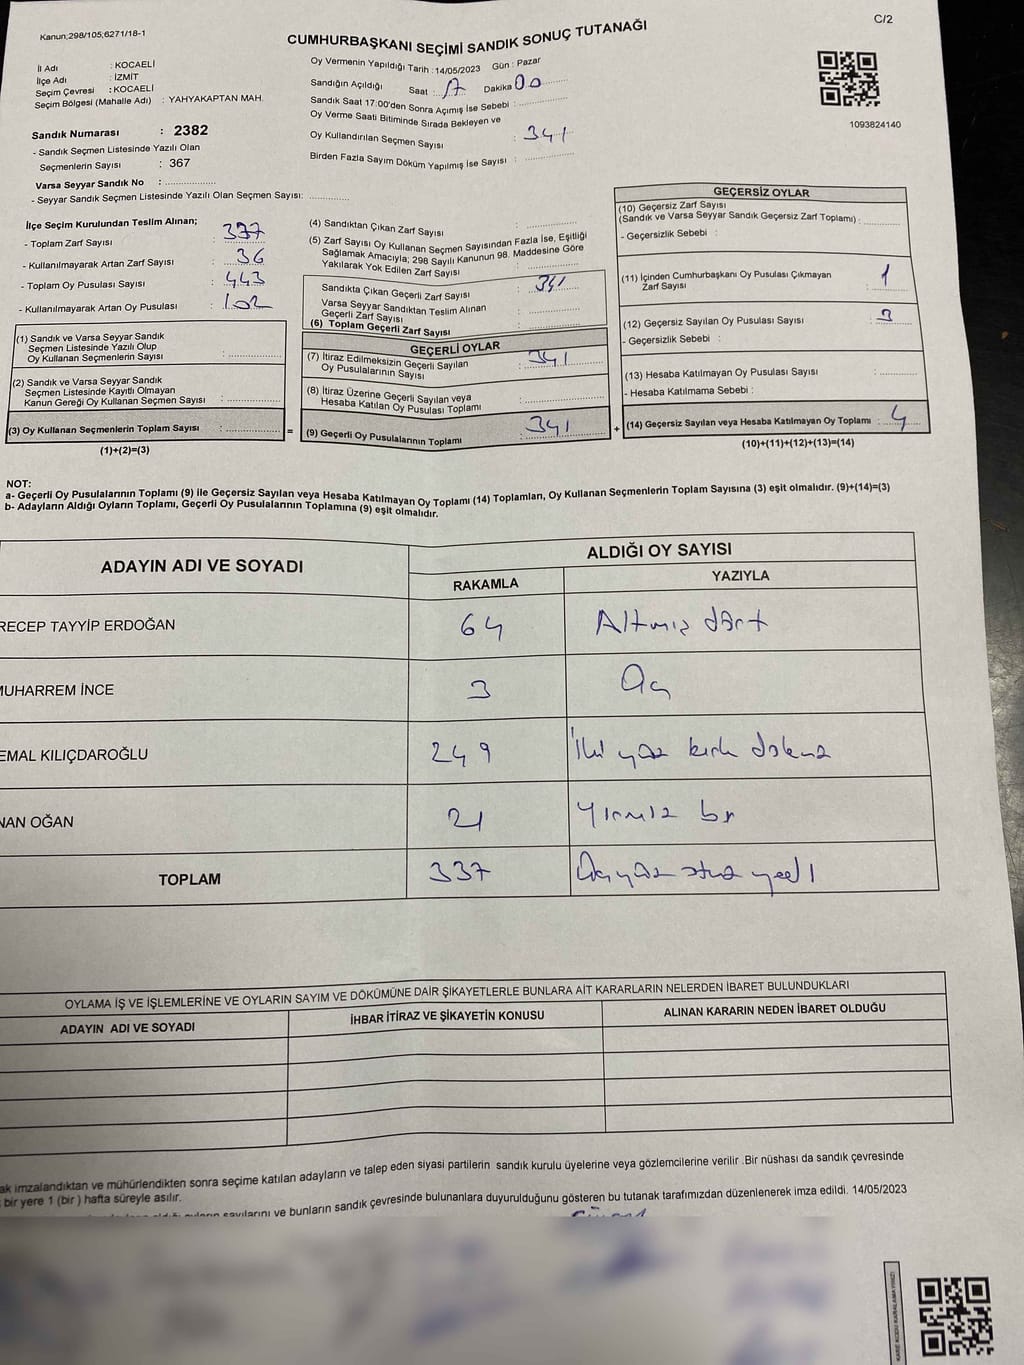 Kanun;298/105;6271/18-1
C/2
CUMHURBAŞKANI SEÇİMİ SANDIK SONUÇ TUTANAĞI
İl Adı : KOCAELİ
İlçe Adı : İZMİT
Seçim Çevresi : KOCAELİ
Seçim Bölgesi (Mahalle Adı) : YAHYAKAPTAN MAH.
Sandık Numarası : 2382
- Sandık Seçmen Listesinde Yazılı Olan
Seçmenlerin Sayısı : 367
Varsa Seyyar Sandık No :
- Seyyar Sandık Seçmen Listesinde Yazılı Olan Seçmen Sayısı:
Oy Vermenin Yapıldığı Tarih : 14/05/2023 Gün : Pazar
Sandığın Açıldığı Saat : 17 Dakika 00
Sandık Saat 17:00'den Sonra Açımış İse Sebebi :
Oy Verme Saati Bitiminde Sırada Bekleyen ve
Oy Kullandırılan Seçmen Sayısı : 341
Birden Fazla Sayım Döküm Yapılmış İse Sayısı :
1093824140
İlçe Seçim Kurulundan Teslim Alınan;
- Toplam Zarf Sayısı : 377
- Kullanılmayarak Artan Zarf Sayısı : 36
- Toplam Oy Pusulası Sayısı : 443
- Kullanılmayarak Artan Oy Pusulası : 102
(1) Sandık ve Varsa Seyyar Sandık
Seçmen Listesinde Yazılı Olup
Oy Kullanan Seçmenlerin Sayısı :
(2) Sandık ve Varsa Seyyar Sandık
Seçmen Listesinde Kayıtlı Olmayan
Kanun Gereği Oy Kullanan Seçmen Sayısı :
(3) Oy Kullanan Seçmenlerin Toplam Sayısı :
(1)+(2)=(3)
=
(4) Sandıktan Çıkan Zarf Sayısı :
(5) Zarf Sayısı Oy Kullanan Seçmen Sayısından Fazla İse, Eşitliği
Sağlamak Amacıyla; 298 Sayılı Kanunun 98. Maddesine Göre
Yakılarak Yok Edilen Zarf Sayısı :
Sandıkta Çıkan Geçerli Zarf Sayısı : 341
Varsa Seyyar Sandıktan Teslim Alınan
Geçerli Zarf Sayısı :
(6) Toplam Geçerli Zarf Sayısı :
GEÇERLİ OYLAR
(7) İtiraz Edilmeksizin Geçerli Sayılan
Oy Pusulalarının Sayısı : 341
(8) İtiraz Üzerine Geçerli Sayılan veya
Hesaba Katılan Oy Pusulası Toplamı :
(9) Geçerli Oy Pusulalarının Toplamı : 341
+
GEÇERSİZ OYLAR
(10) Geçersiz Zarf Sayısı
(Sandık ve Varsa Seyyar Sandık Geçersiz Zarf Toplamı) :
- Geçersizlik Sebebi :
(11) İçinden Cumhurbaşkanı Oy Pusulası Çıkmayan
Zarf Sayısı : 1
(12) Geçersiz Sayılan Oy Pusulası Sayısı : 3
- Geçersizlik Sebebi :
(13) Hesaba Katılmayan Oy Pusulası Sayısı :
- Hesaba Katılmama Sebebi :
(14) Geçersiz Sayılan veya Hesaba Katılmayan Oy Toplamı : 4
(10)+(11)+(12)+(13)=(14)
NOT:
a- Geçerli Oy Pusulalarının Toplamı (9) ile Geçersiz Sayılan veya Hesaba Katılmayan Oy Toplamı (14) Toplamları, Oy Kullanan Seçmenlerin Toplam Sayısına (3) eşit olmalıdır. (9)+(14)=(3)
b- Adayların Aldığı Oyların Toplamı, Geçerli Oy Pusulalarının Toplamına (9) eşit olmalıdır.
ADAYIN ADI VE SOYADI ALDIĞI OY SAYISI
RAKAMLA YAZIYLA
RECEP TAYYİP ERDOĞAN 64 Altmış dört
MUHARREM İNCE 3 Üç
EMAL KILIÇDAROĞLU 249 İki yüz kırk dokuz
NAN OĞAN 21 Yirmi bir
TOPLAM 337 Üçyüz otuz yedi
OYLAMA İŞ VE İŞLEMLERİNE VE OYLARIN SAYIM VE DÖKÜMÜNE DAİR ŞİKAYETLERLE BUNLARA AİT KARARLARIN NELERDEN İBARET BULUNDUKLARI
ADAYIN ADI VE SOYADI İHBAR İTİRAZ VE ŞİKAYETİN KONUSU ALINAN KARARIN NEDEN İBARET OLDUĞU
ak imzalandıktan ve mühürlendikten sonra seçime katılan adayların ve talep eden siyasi partilerin sandık kurulu üyelerine veya gözlemcilerine verilir .Bir nüshası da sandık çevresinde
bir yere 1 (bir ) hafta süreyle asılır.
oyların sayılarını ve bunların sandık çevresinde bulunanlara duyurulduğunu gösteren bu tutanak tarafımızdan düzenlenerek imza edildi. 14/05/2023